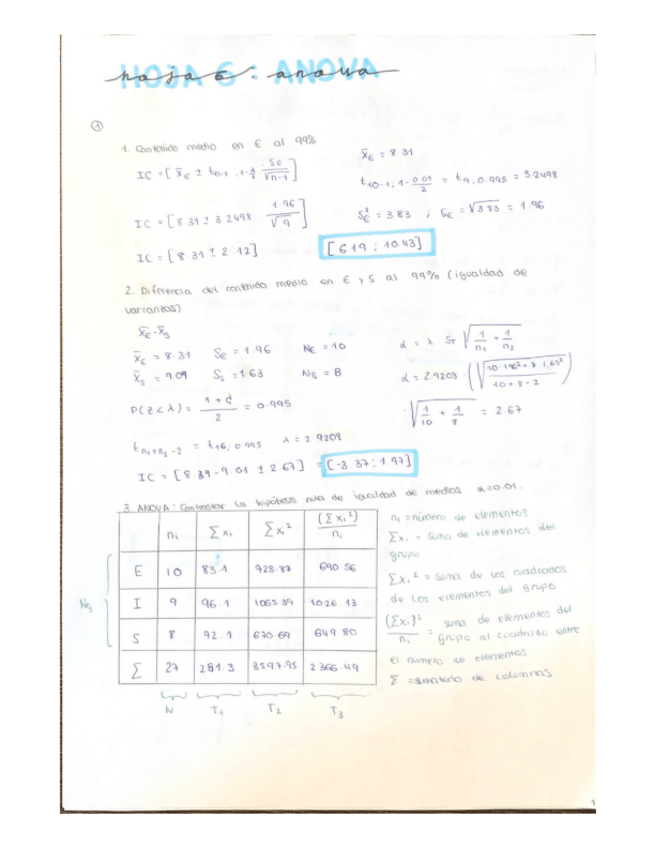 HOJA 6: ANOVA
hoja 6: anova
①
1. Contenido medio en E al 99%
IC = [ x̄E ± tn-1, 1-α/2 · SE/√n-1 ]
x̄E = 8.31
t10-1; 1-0.01/2 = t9, 0.995 = 3.2498
IC = [ 8.31 ± 3.2498 · 1.96/√9 ]
SE² = 3.83 ; SE = √3.83 = 1.96
IC = [8.31 ± 2.12]
[6.19 ; 10.43]
2. Diferencia del contenido medio en E y S al 99% (igualdad de
varianzas)
x̄E - x̄S
x̄E = 8.31 SE = 1.96 NE = 10
α = λ · ST √1/n1 + 1/n2
x̄S = 9.09 SS = 1.63 NS = 8
α = 2.9208 · (√10·1.96² + 8·1.63² / 10+8-2)
P(Z < λ) = 1+α/2 = 0.995
· √1/10 + 1/8 = 2.67
tn1+n2-2 = t16; 0.995 λ = 2.9208
IC = [8.39 - 9.01 ± 2.67] = [-3.37 ; 1.97]
3. ANOVA: Contrastar la hipótesis nula de igualdad de medias α=0.01.
ni Σxi Σxi² (Σxi²)/ni
E 10 83.1 928.87 690.56
I 9 96.1 1065.39 1026.13
S 8 92.1 670.69 649.80
Σ 27 281.3 3597.95 2366.49
Ng
N T1 T2 T3
ni = número de elementos
Σxi = Suma de elementos del
grupo
Σxi² = Suma de los cuadrados
de los elementos del grupo
(Σxi)²/ni = suma de elementos del
grupo al cuadrado entre
el número de elementos
Σ = sumatorio de columnas
1